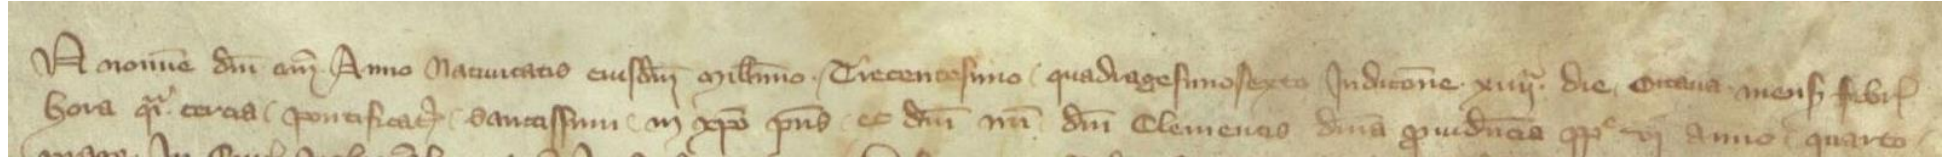 In nomine dni am̅ Anno Natiuitatis eiusdm̅ mill̅mo Trecentesimo quadragesimosexto Indictõne xiiijᵃ die Octaua mens̅ febr̅
hora qᵃi tercia pontificat̅ Sanctissimi in xp̅o pr̅is et dn̅i nr̅i dn̅i Clementis diuia̅ ꝓuide̅cia pp̅ vj anno quarto